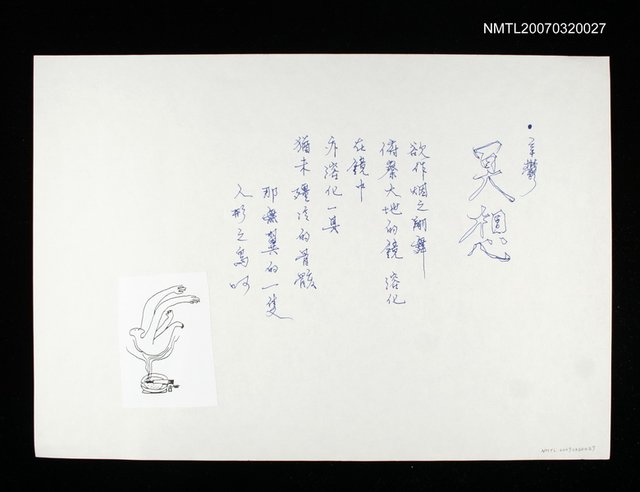 NMTL20070320027
•辛鬱
冥想
欲作烟之翔舞
倚羣大地的鏡 溶化
在鏡中
亦溶化一具
猶未殭冷的骨骸
那無翼的一隻
人形之鳥呵
NMTL20070320027